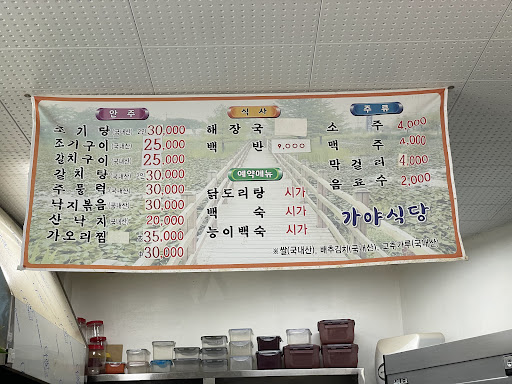 안주
조기탕 (국내산) 2인 30,000
조기구이 (국내산) 25,000
갈치구이 (국내산) 25,000
갈치탕 (국내산) 30,000
주물럭 (국내산) 30,000
낙지볶음 (국내산) 30,000
산낙지 (국내산) 20,000
가오리찜 35,000
30,000
식사
해장국
백반 9,000
예약메뉴
닭도리탕 시가
백숙 시가
능이백숙 시가
주류
소주 4,000
맥주 4,000
막걸리 4,000
음료수 2,000
가야식당
※쌀(국내산), 배추김치(국내산), 고추가루(국내산)